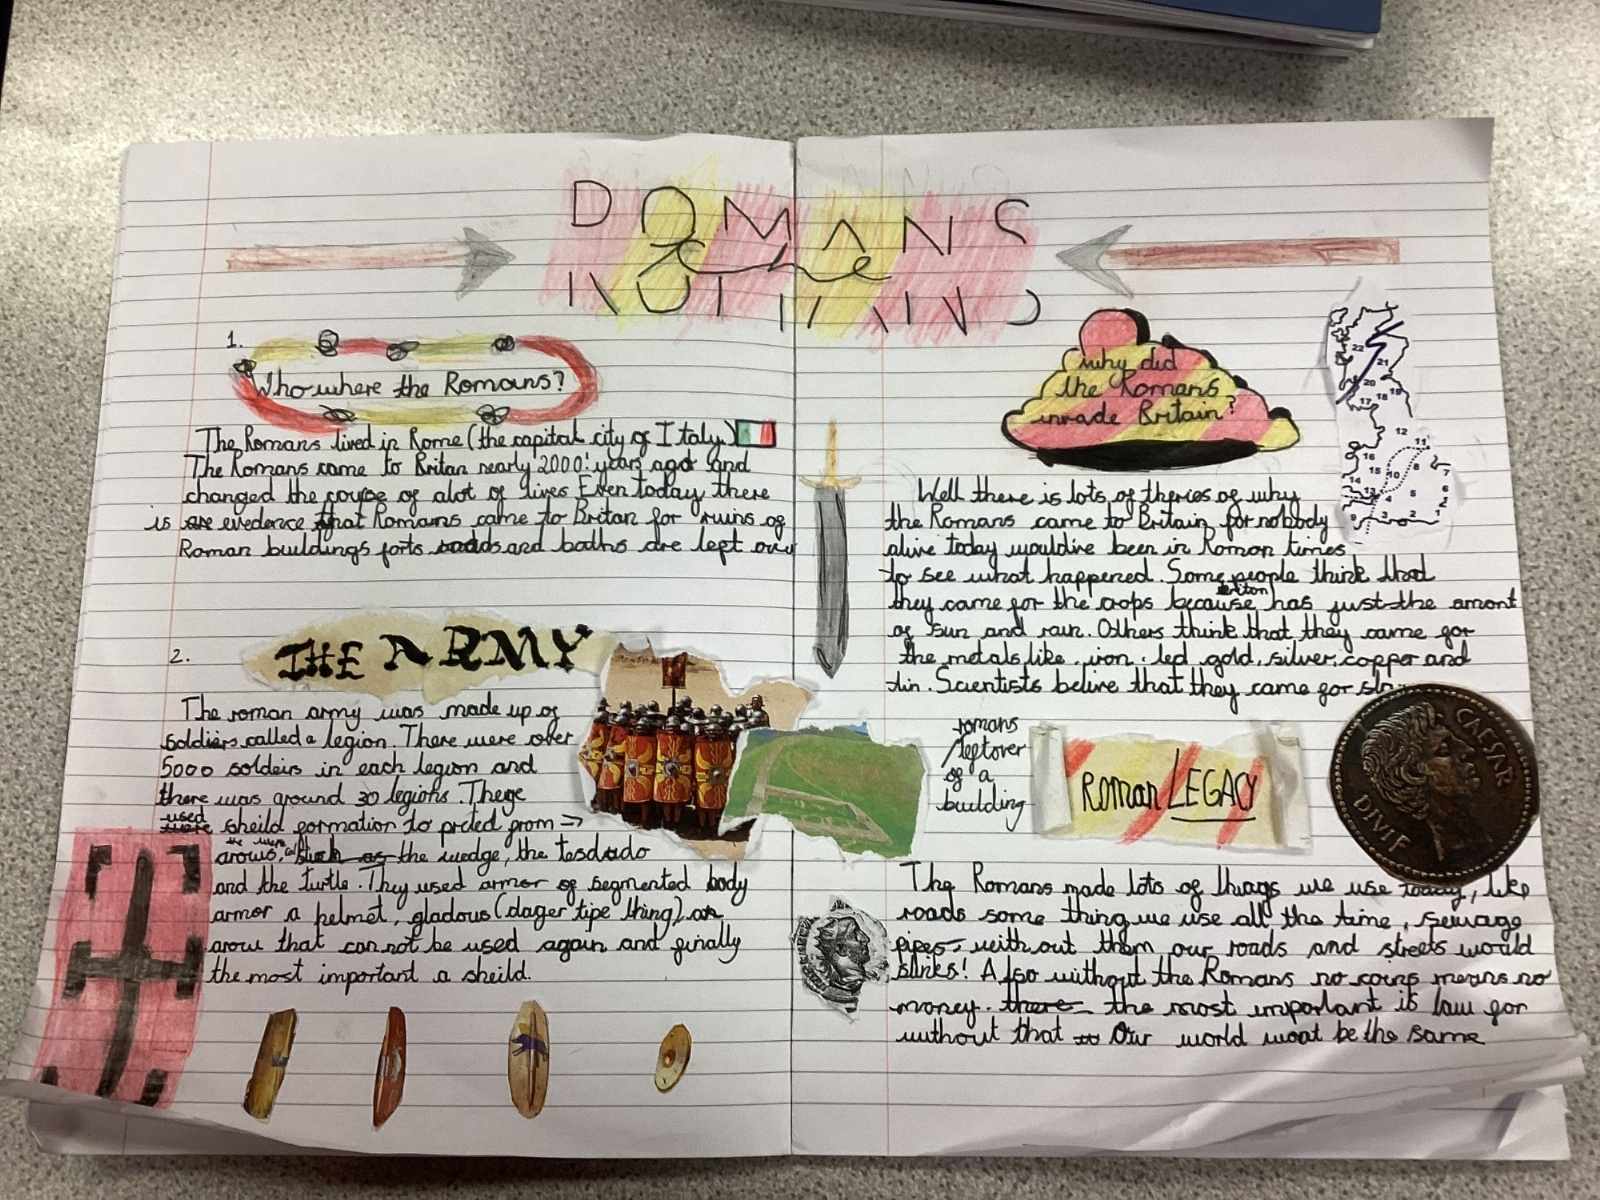 ROMANS
1.
Who where the Romans?
The Romans lived in Rome (the capital city of Italy)
The Romans came to Britan nearly 2000! years ago and
changed the course of alot of lives Even today there
is are evedence that Romans came to Britan for ruins of
Roman buildings forts roads and baths are left over
2.
THE ARMY
The roman army was made up of
soldiers called a legion. There were over
5000 soldeirs in each legion and
there was around 30 legions. These
used
were sheild formation to protect from →
arows, such as the wedge, the tesdudo
and the turtle. They used armor of segmented body
armor a helmet, gladous (dager tipe thing) an
arow that can not be used again and finally
the most important a sheild.
why did
the Romans
invade Britain?
22
21
20
19
18
17
12
11
16
15
10
8
7
14
13
6
5
4
3
2
1
9
Well there is lots of theries of why
the Romans came to Britain for nobody
alive today would've been in Roman times
to see what happened. Some people think that
they came for the crops because briton has just the amont
of sun and rain. Others think that they came for
the metals like iron. led gold, silver, copper and
tin. Scientists belive that they came for
romans
leftover
of a
building
Roman LEGACY
CAESAR
DIVI F
The Romans made lots of things we use today, like
roads some thing we use all the time, sewage
pipes, with out them our roads and streets would
stinks! Also without the Romans no coins means no
money. there the most important is law for
without that Our world woat be the same